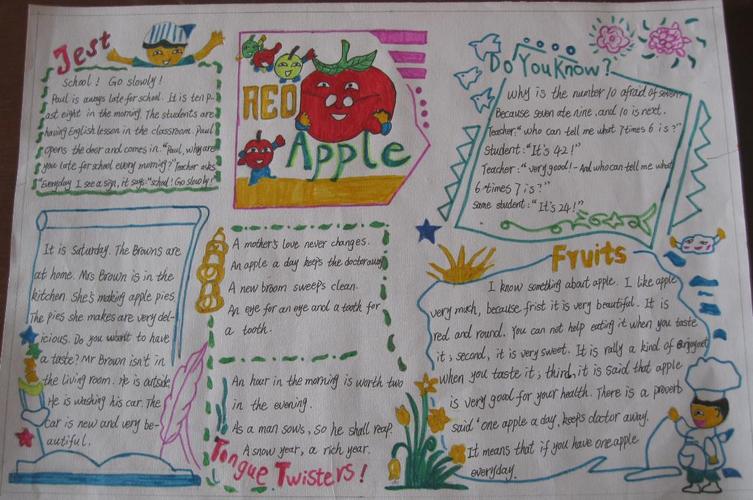 Jest
School! Go slowly!
Paul is always late for school. It is ten p-
ast eight in the morning. The students are
having English lesson in the classroom. Paul
opens the door and comes in. "Paul, why are
you late for school every morning?" Teacher asks
"Everyday I see a sign, it says "school! Go slowly!"
RED
Apple
Do You Know?
Why is the number 10 afraid of seven?
Because seven ate nine, and 10 is next.
Teacher: "who can tell me what 7 times 6 is?"
Student: "It's 42!"
Teacher: "very good! - And who can tell me what
6 times 7 is?"
Same student: "It's 24!"
It is Saturday. The Browns are
at home. Mrs Brown is in the
kitchen. She's making apple pies.
The pies she makes are very del-
icious. Do you want to have
a taste? Mr Brown isn't in
the living room. He is outside
He is washing his car. The
car is new and very be-
autiful.
A mother's love never changes.
An apple a day keeps the doctor away
A new broom sweeps clean.
An eye for an eye and a tooth for
a tooth.
An hour in the morning is worth two
in the evening.
As a man sows, so he shall reap.
A snow year, a rich year.
Tongue Twisters!
Fruits
I know something about apple. I like apple
very much, because frist it is very beautiful. It is
red and round. You can not help eating it when you taste
it; second, it is very sweet. It is rally a kind of enjoyment
when you taste it; third, it is said that apple
is very good for your health. There is a proverb
said "one apple a day, keeps doctor away.
It means that if you have one apple
everyday.